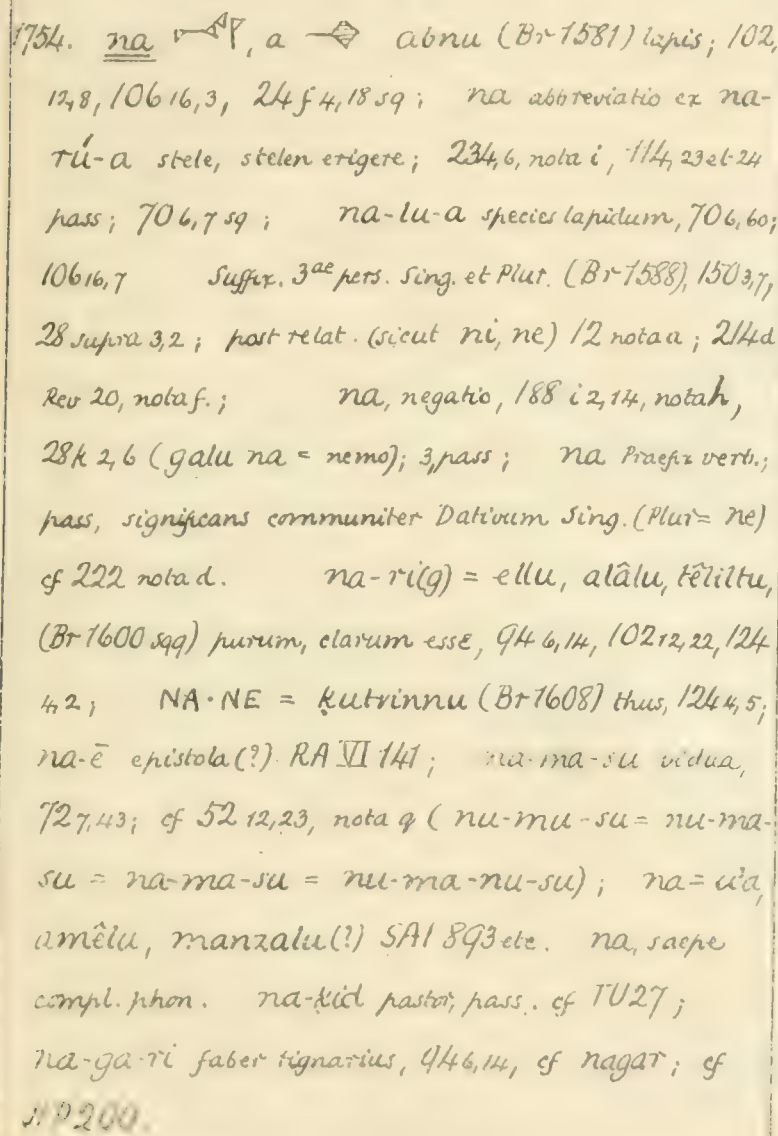 1754. na 𒈾, a abnu (Br 1581) lapis; 102,
12,8, 106 16,3, 24 f 4,18 sq; na abbreviatio ex na-
rú-a stele, stelen erigere; 234,6, nota i, 114, 23 et 24
pass; 70 6,7 sq; na-lu-a species lapidum, 70 6,60;
106 16,7 Suffix. 3ae pers. Sing. et Plur. (Br 1588), 150 3,7,
28 supra 3,2; post relat. (sicut ni, ne) 12 nota a; 214 d
Rev 20, nota f.; na, negatio, 188 i 2,14, nota h,
28 k 2,6 (galu na = nemo); 3, pass; na Praefix verb.;
pass, significans communiter Dativum Sing. (Plur = ne)
cf 222 nota d. na-ri(g) = ellu, alâlu, têliltu,
(Br 1600 sqq) purum, clarum esse, 94 6,14, 102 12,22, 124
4,2; NA·NE = ḳutrinnu (Br 1608) thus, 124 4,5;
na-ē epistola (?) RA VI 141; na-ma-su vidua,
72 7,43; cf 52 12,23, nota q (nu-mu-su = nu-ma-
su = na-ma-su = nu-ma-nu-su); na = u'a,
amêlu, manzalu (?) SAI 893 etc. na, saepe
compl. phon. na-ḳid pastor, pass. cf TU 27;
na-ga-ri faber tignarius, 94 6,14, cf nagar; cf
200.